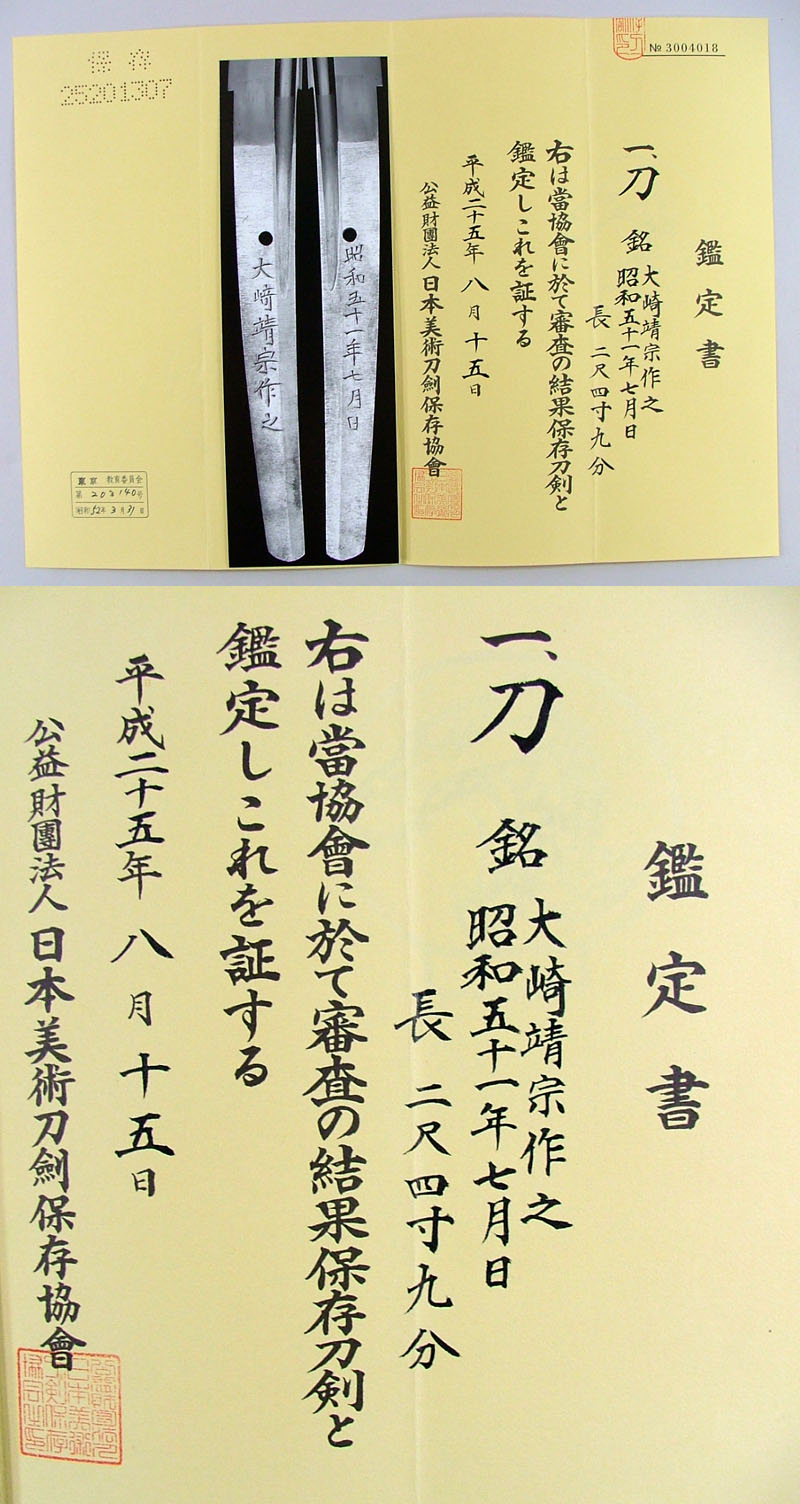 保存
25201307
大﨑靖宗作之
昭和五十一年七月日
東京 教育委員会
第 202140号
昭和 52年 3月 31日
№ 3004018
鑑定書
一、刀 銘 大﨑靖宗作之
昭和五十一年七月日
長 二尺四寸九分
右は當協會に於て審査の結果保存刀剣と
鑑定しこれを証する
平成二十五年 八月十五日
公益財團法人日本美術刀劍保存協會
鑑定書
一、刀 銘 大﨑靖宗作之
昭和五十一年七月日
長 二尺四寸九分
右は當協會に於て審査の結果保存刀剣と
鑑定しこれを証する
平成二十五年 八月十五日
公益財團法人日本美術刀劍保存協會